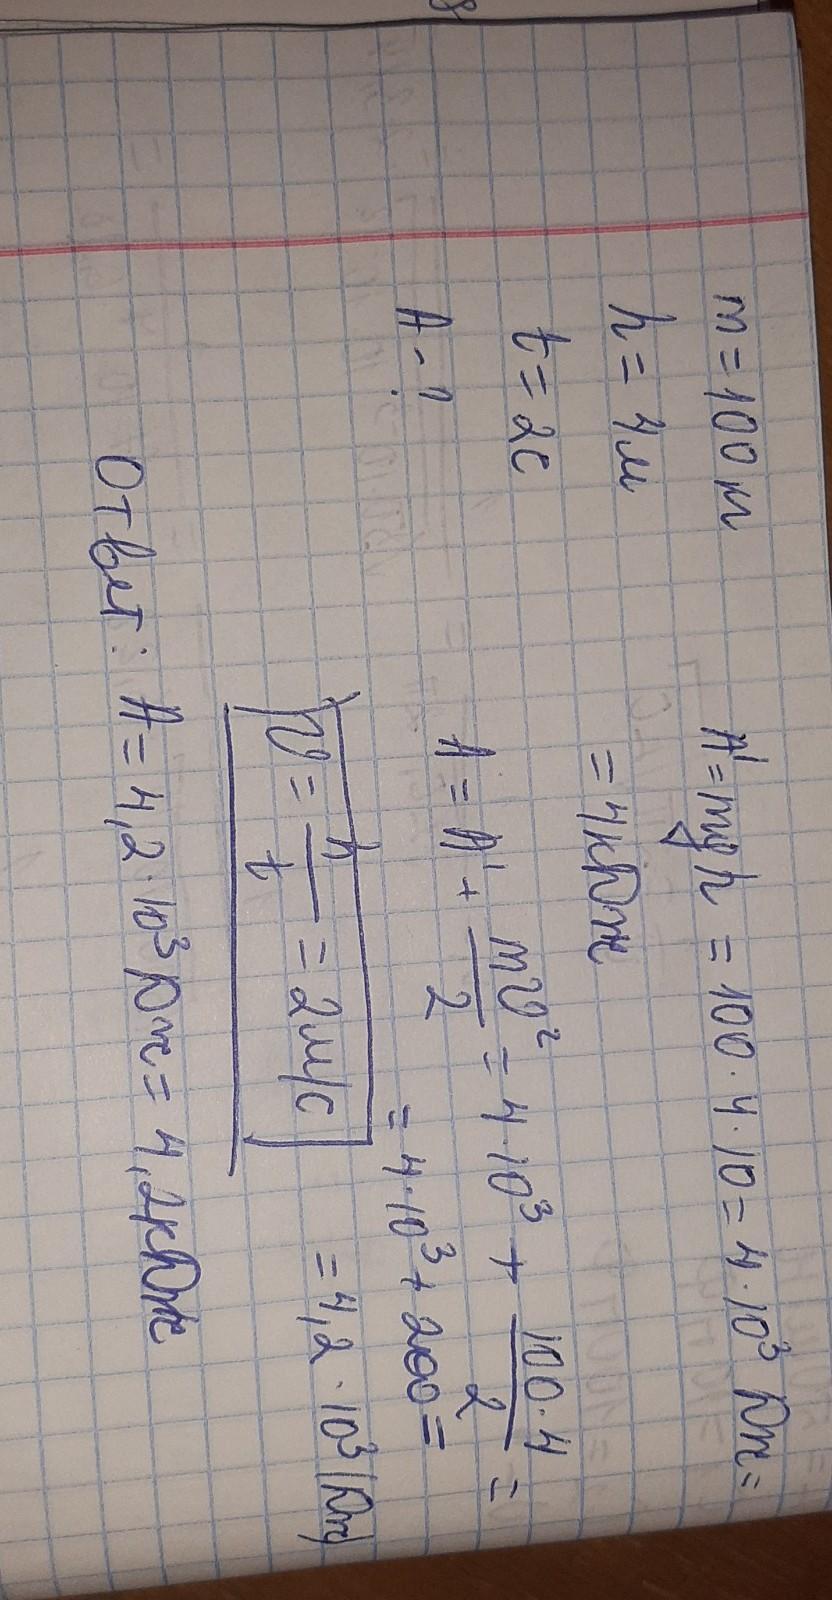 m = 100 м
h = 4м
t = 2с
A - ?
A' = mgh = 100 · 4 · 10 = 4 · 10³ Дж =
= 4кДж
A = A' + mv²/2 = 4 · 10³ + 100 · 4/2 =
= 4 · 10³ + 200 =
= 4,2 · 10³ (Дж)
v = h/t = 2м/с
Ответ: A = 4,2 · 10³ Дж = 4,2кДж